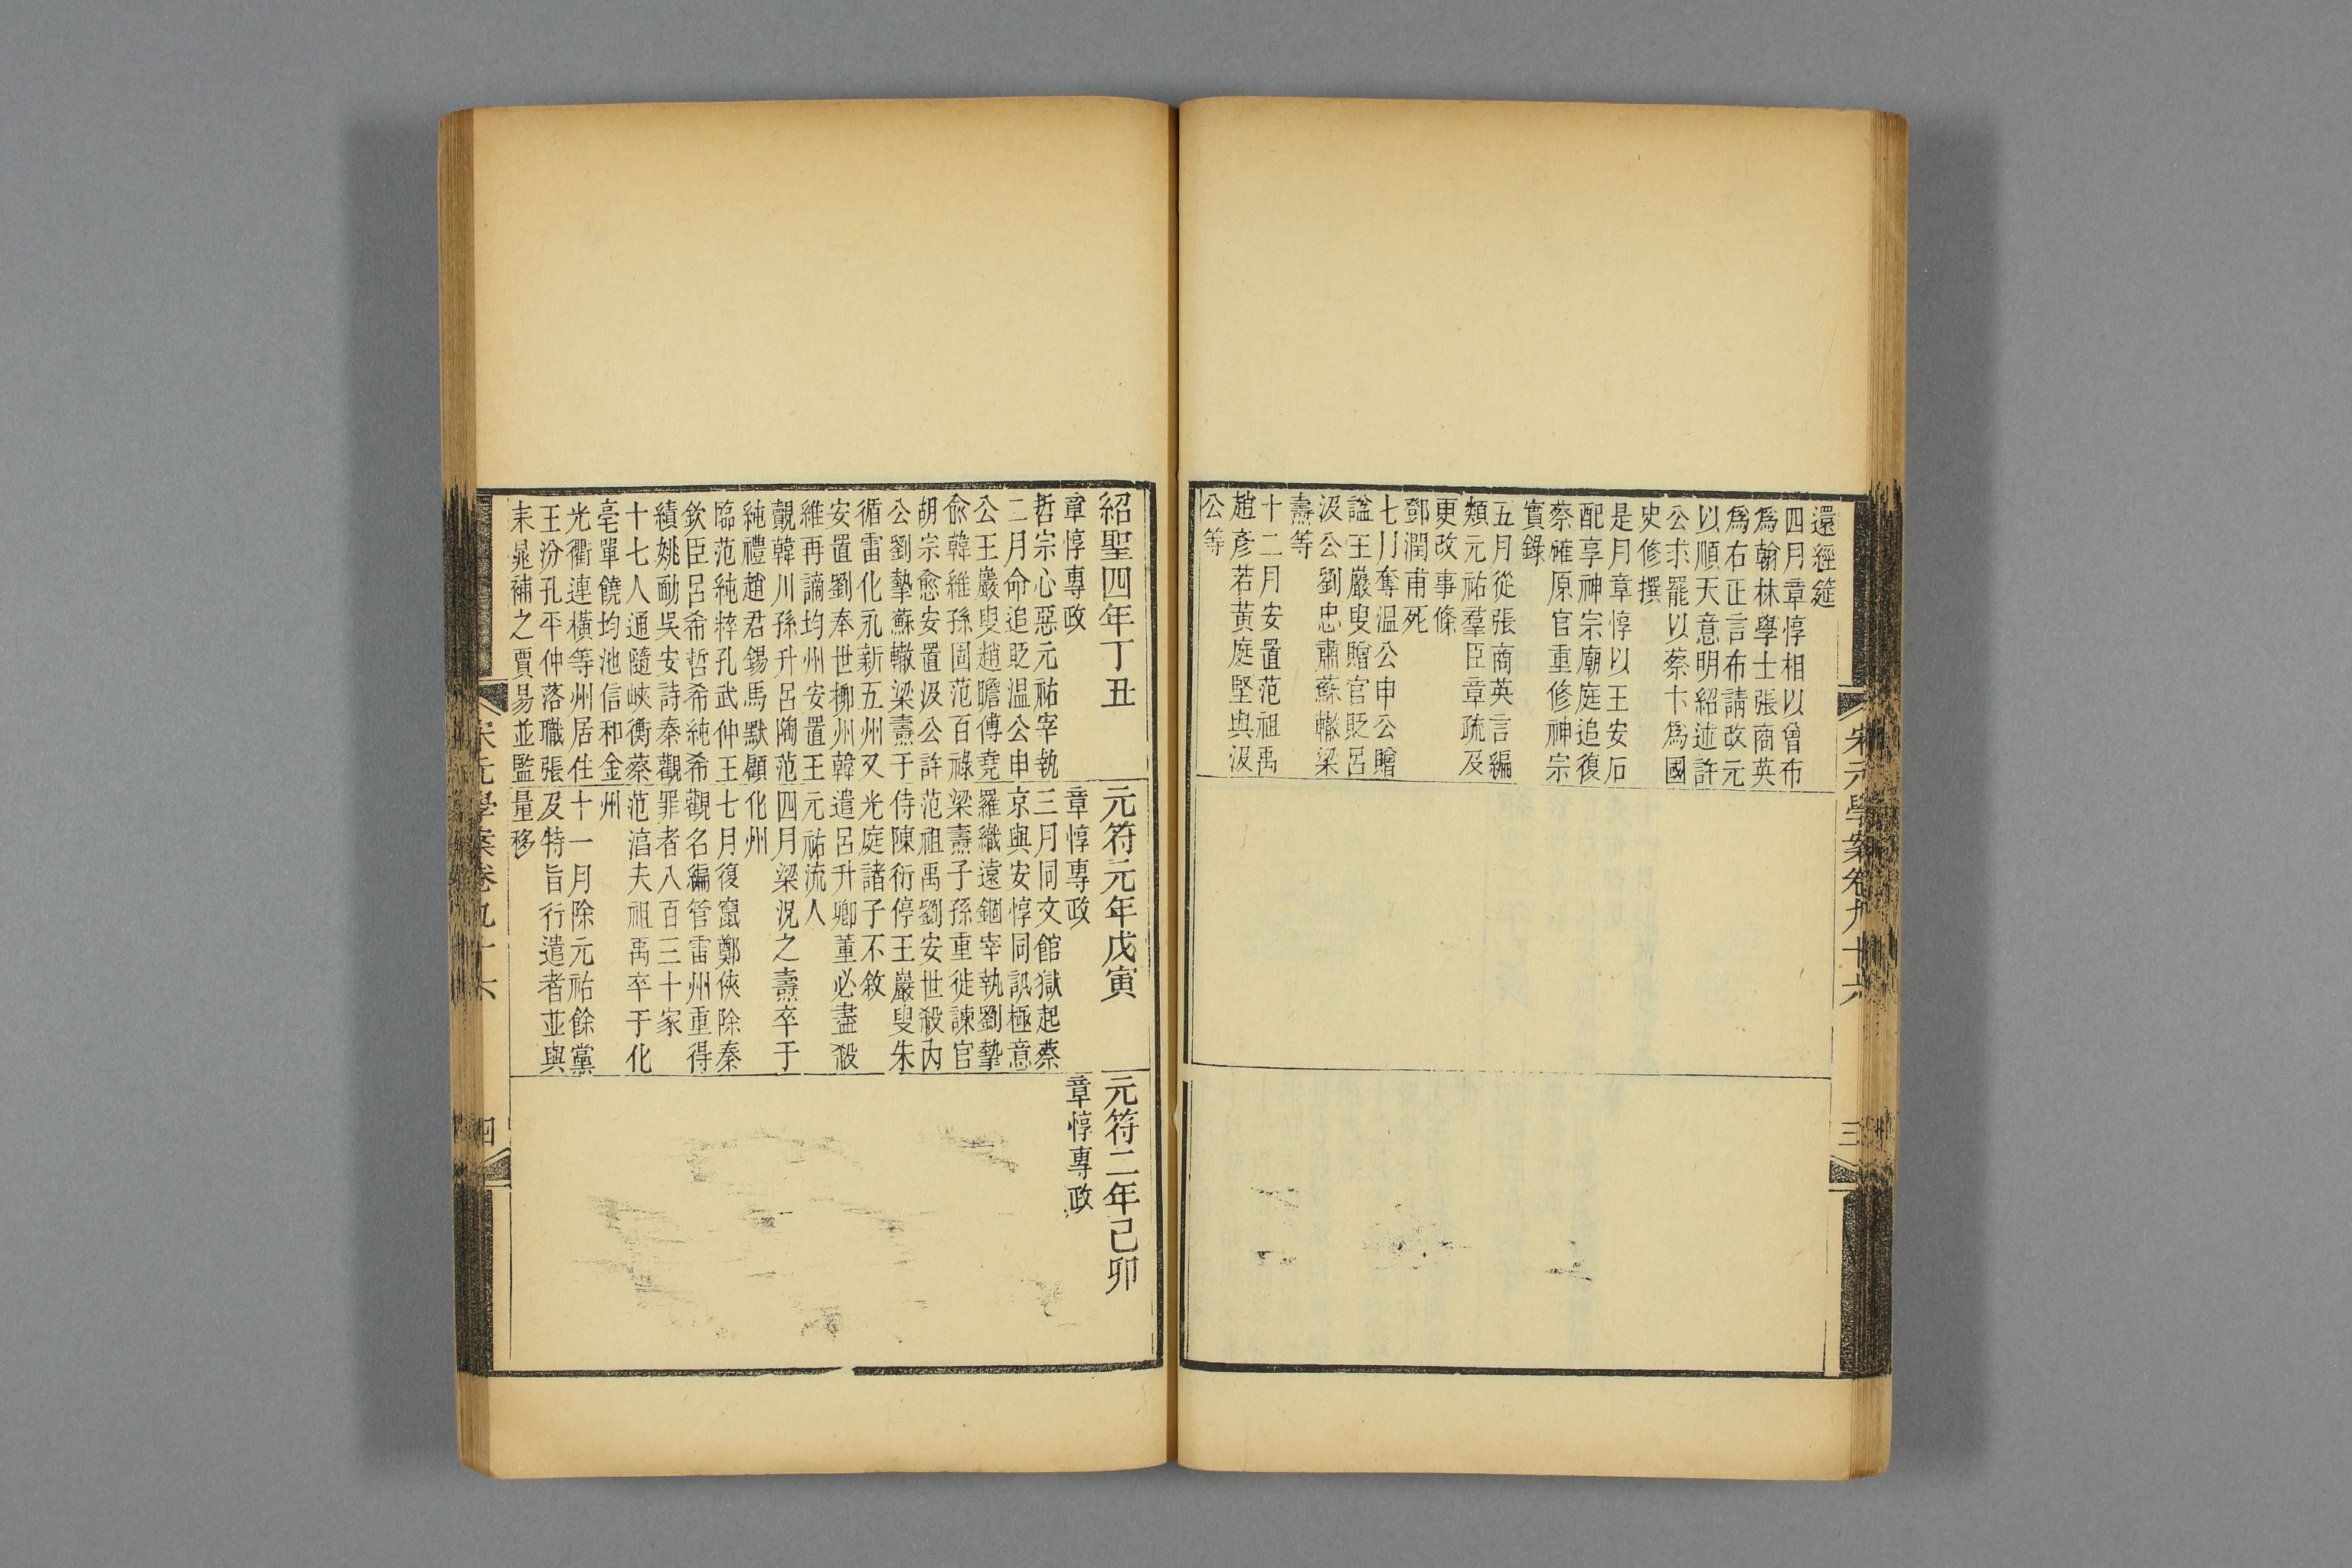 宋元學案卷九十六
三
還經筵
四月章惇相以曾布
爲翰林學士張商英
爲右正言布請改元
以順天意明紹述許
公求罷以蔡卞爲國
史修撰
是月章惇以王安石
配享神宗廟庭追復
蔡確原官重修神宗
實錄
五月從張商英言編
類元祐羣臣章疏及
更改事條
鄧潤甫死
七月奪温公申公贈
諡王巖叟贈官貶呂
汲公劉忠肅蘇轍梁
燾等
十二月安置范祖禹
趙彥若黃庭堅與汲
公等
紹聖四年丁丑
章惇專政
哲宗心惡元祐宰執
二月命追貶温公申
公王巖叟趙瞻傅堯
俞韓維孫固范百祿
胡宗愈安置汲公許
公劉摯蘇轍梁燾于
循雷化永新五州又
安置劉奉世郴州韓
維再謫均州安置王
覿韓川孫升呂陶范
純禮趙君錫馬默顧
臨范純粹孔武仲王
欽臣呂希哲希純希
績姚勔吳安詩秦觀
十七人通隨峽衡蔡
亳單饒均池信和金
光衢連橫等州居住
王汾孔平仲落職張
耒晁補之賈易並監
元符元年戊寅
章惇專政
三月同文館獄起蔡
京與安惇同訊極意
羅織遠錮宰執劉摯
梁燾子孫重徙諫官
范祖禹劉安世殺内
侍陳衍停王巖叟朱
光庭諸子不敘
遣呂升卿董必盡殺
元祐流人
四月梁況之燾卒于
化州
七月復竄鄭俠除秦
觀名編管雷州重得
罪者八百三十家
范湻夫祖禹卒于化
州
十一月除元祐餘黨
及特旨行遣者並與
量移
元符二年己卯
章惇專政
宋元學案卷九十六
四